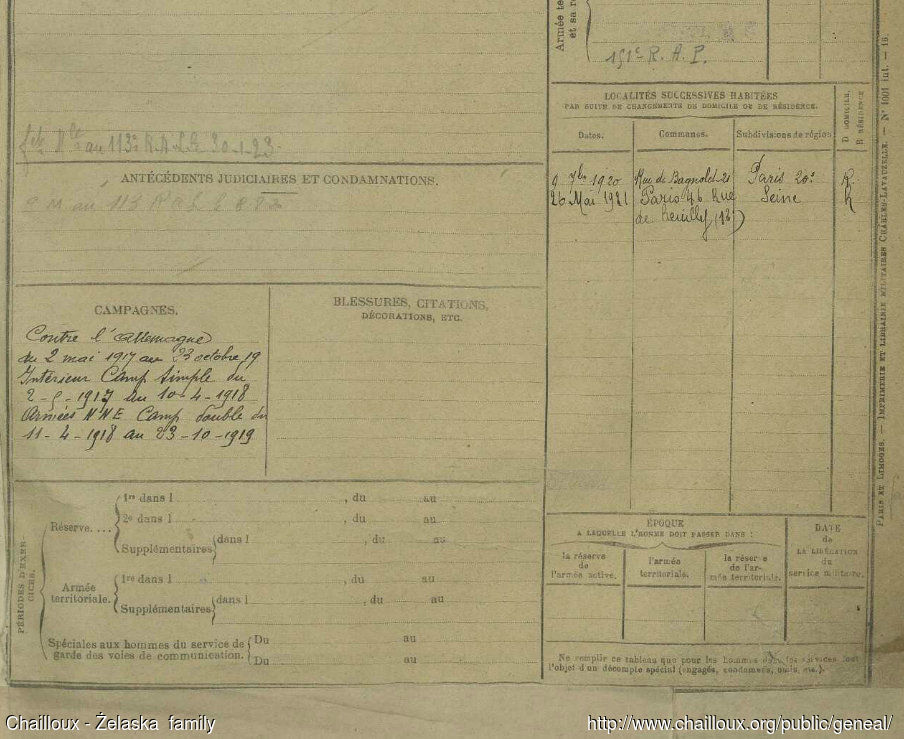 Armée te
et sa r
151e R. A. P.
au 113e R.A.L. 30-1-23
ANTÉCÉDENTS JUDICIAIRES ET CONDAMNATIONS.
LOCALITÉS SUCCESSIVES HABITÉES
PAR SUITE DE CHANGEMENTS DE DOMICILE OU DE RÉSIDENCE.
D DOMICILE.
R RÉSIDENCE
Dates.
Communes.
Subdivisions de région
9 7bre 1920
Rue de Bagnolet 21
Paris 20e
R
26 Mai 1921
Paris 46 Rue
Seine
de Neuilly (12)
CAMPAGNES.
Contre l'allemagne
du 2 mai 1917 au 23 octobre 19
Interieur Camp. simple du
2-5-1917 au 10-4-1918
Armées NNE Camp double du
11-4-1918 au 23-10-1919
BLESSURES, CITATIONS,
DÉCORATIONS, ETC.
PÉRIODES D'EXER-
CICES.
Réserve....
1re dans l , du au
2e dans l , du au
Supplémentaires dans l , du au
Armée
territoriale.
1re dans l , du au
Supplémentaires dans l , du au
Spéciales aux hommes du service de
garde des voies de communication.
Du au
Du au
ÉPOQUE
A LAQUELLE L'HOMME DOIT PASSER DANS :
la réserve
de
l'armée active.
l'armée
territoriale.
la réserve
de l'ar-
mée territoriale.
DATE
de
LA LIBÉRATION
du
service militaire.
Ne remplir ce tableau que pour les hommes dont les services font
l'objet d'un décompte spécial (engagés, condamnés, omis, etc.).
PARIS ET LIMOGES. — IMPRIMERIE ET LIBRAIRIE MILITAIRES CHARLES-LAVAUZELLE. — N° 1001 int. — 16.
Chailloux - Żelaska family
http://www.chailloux.org/public/geneal/